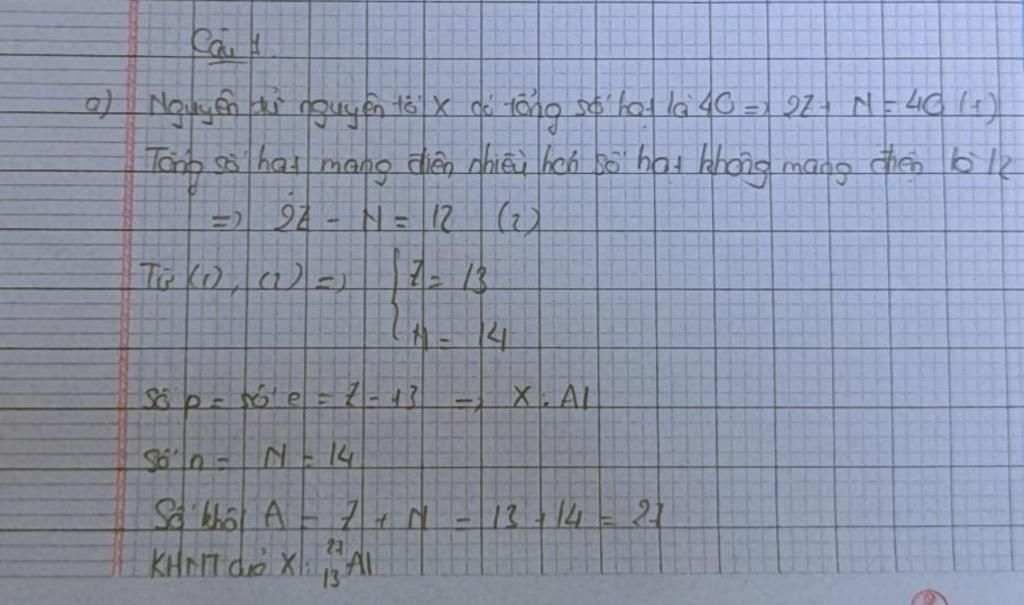 Câu 1.
a) Nguyên tử nguyên tố X có tổng số hạt là 40 => 2Z + N = 40 (1)
Tổng số hạt mang điện nhiều hơn số hạt không mang điện là 12
=> 2Z - N = 12 (2)
Từ (1), (2) => { Z = 13
N = 14
Số p = số e = Z = 13 => X: Al
Số n = N = 14
Số khối A = Z + N = 13 + 14 = 27
KHNT của X: ²⁷₁₃Al